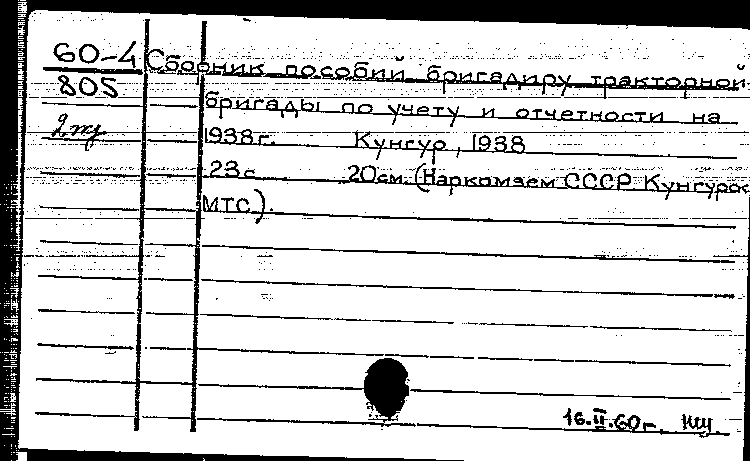 60-4 Сборник пособий бригадиру тракторной
805
бригады по учету и отчетности на
2 экз
1938г. Кунгур, 1938
23с. 20см. (Наркомзем СССР. Кунгурс
МТС).
16.II.60г.